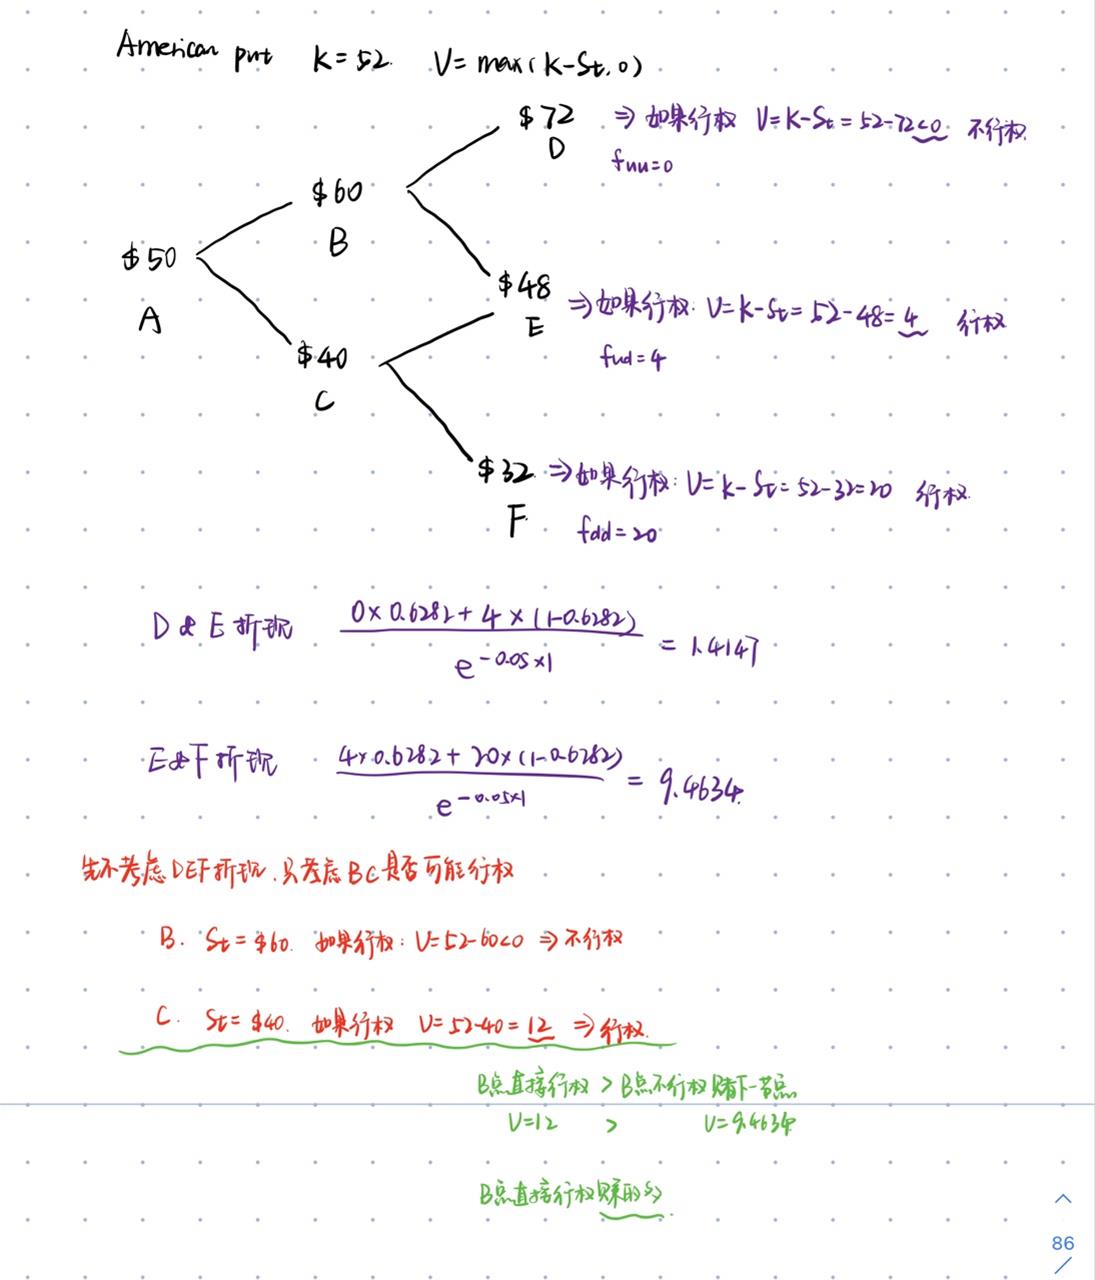 American put K=52. V=max(K-St,0)
$72 ⇒ 如果行权 V=K-St=52-72<0 不行权.
D
fuu=0
$60
B
$50
A
$48 ⇒如果行权: V=K-St=52-48=4 行权
E
fud=4
$40
C
$32. ⇒如果行权: V=K-St=52-32=20 行权.
F
fdd=20
D & E 折现 0×0.6282+4×(1-0.6282) / e^-0.05×1 = 1.4147
E&F 折现 4×0.6282+20×(1-0.6282) / e^-0.05×1 = 9.4634.
先不考虑DEF折现.只考虑BC是否可能行权
B. St=$60. 如果行权: V=52-60<0 ⇒不行权
C. St=$40. 如果行权 V=52-40=12 ⇒行权.
B点直接行权 > B点不行权 赌下一节点
V=12 > V=9.4634
B点直接行权赚的多
86